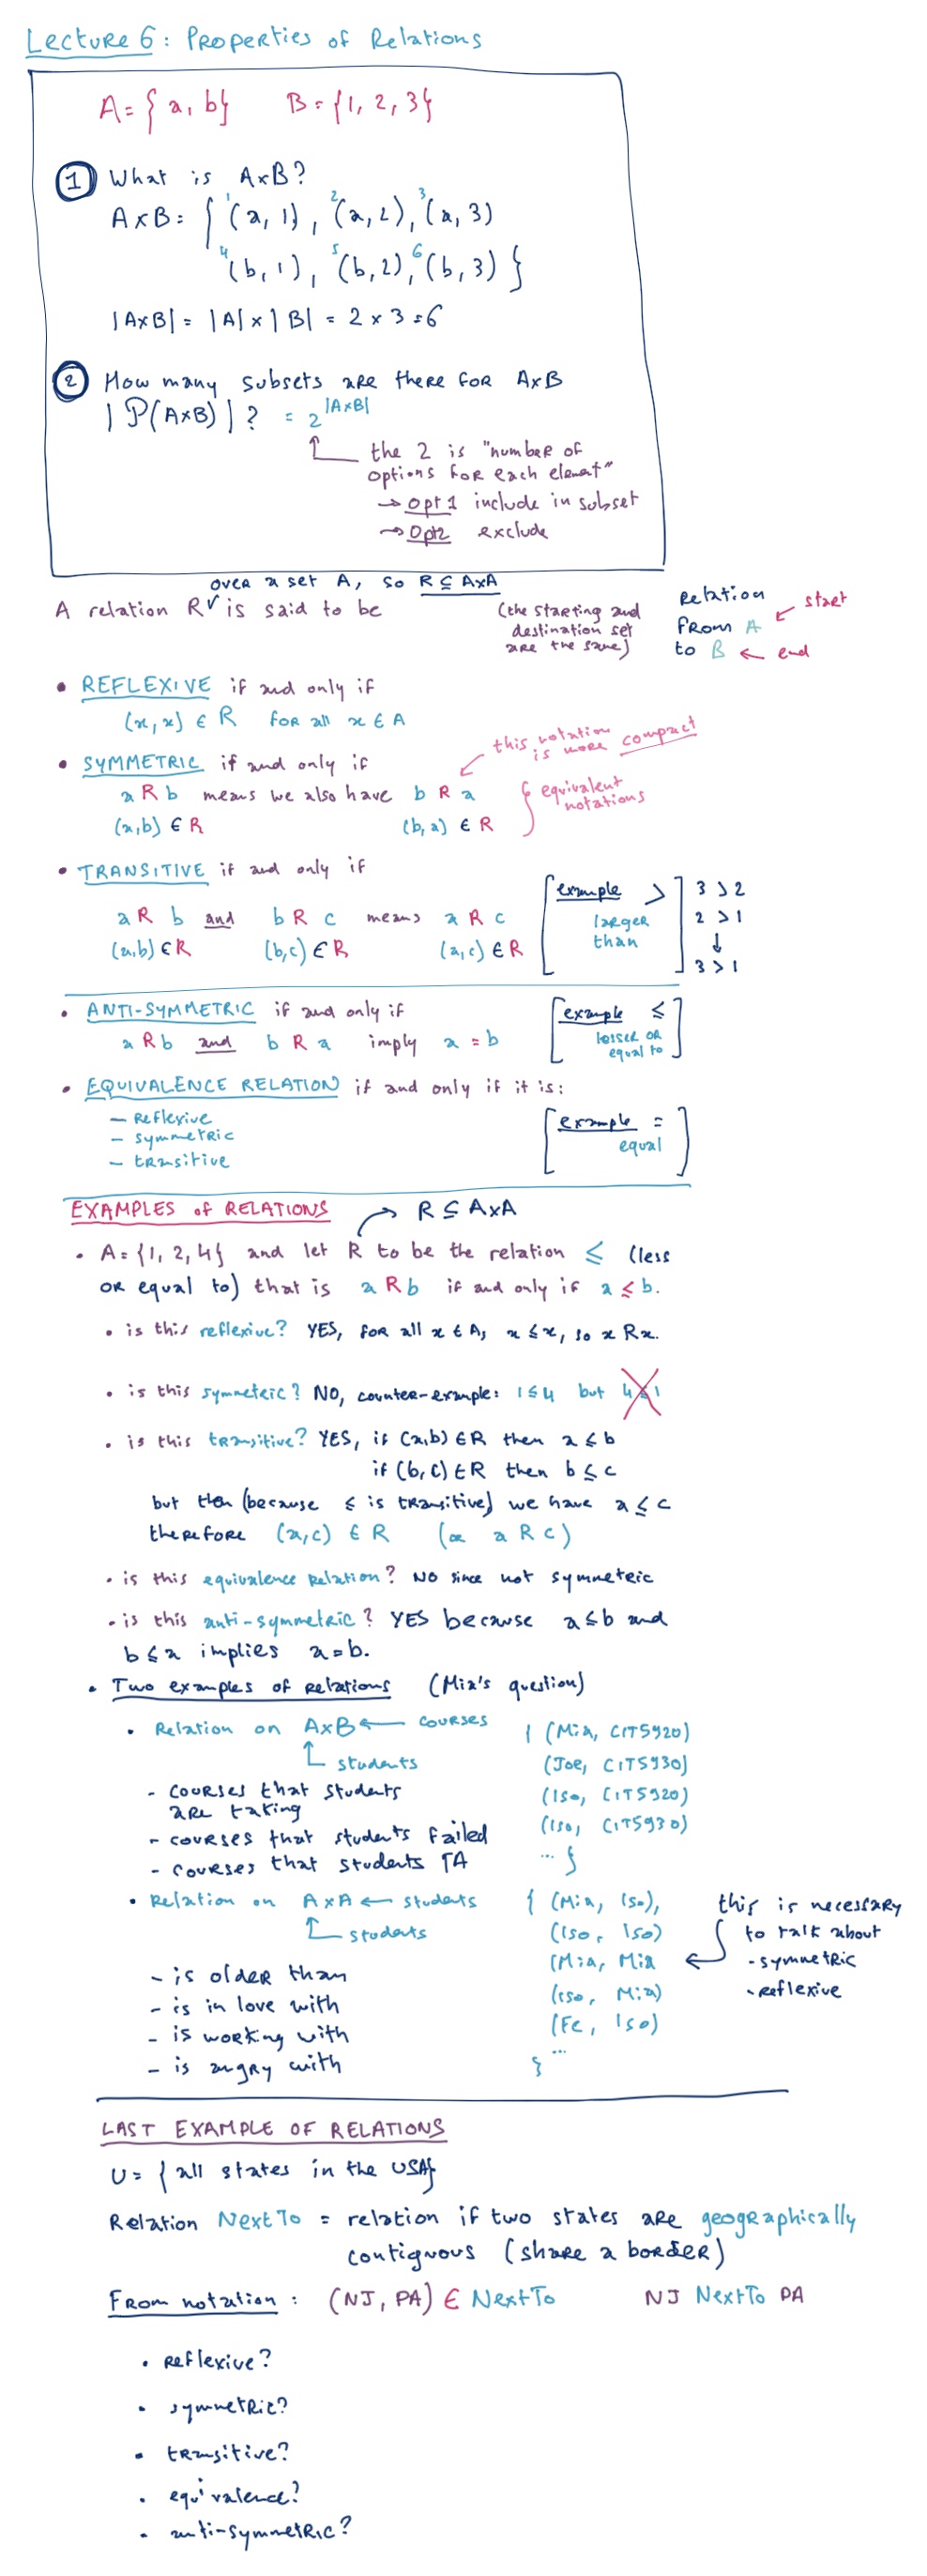 Lecture 6: Properties of Relations
A = { a, b}   B = {1, 2, 3}
① What is A×B?
A×B = { ¹(a, 1), ²(a, 2), ³(a, 3)
⁴(b, 1), ⁵(b, 2), ⁶(b, 3) }
|A×B| = |A| × |B| = 2 × 3 = 6
② How many subsets are there for A×B
|P(A×B)|? = 2^|A×B|
the 2 is "number of
options for each element"
→ opt 1 include in subset
→ Opt2 exclude
over a set A, so R ⊆ A×A
A relation R is said to be
(the starting and
destination set
are the same)
Relation
from A ← start
to B ← end
• REFLEXIVE if and only if
(x, x) ∈ R for all x ∈ A
this notation
is more compact
• SYMMETRIC if and only if
a R b means we also have b R a
(a,b) ∈ R   (b, a) ∈ R
} equivalent
notations
• TRANSITIVE if and only if
a R b and b R c means a R c
(a,b) ∈ R   (b,c) ∈ R   (a,c) ∈ R
[example > ]
larger
than
3 > 2
2 > 1
↓
3 > 1
• ANTI-SYMMETRIC if and only if
a R b and b R a imply a = b
[example ≤ ]
lesser or
equal to
• EQUIVALENCE RELATION if and only if it is:
– Reflexive
– symmetric
– transitive
[example = ]
equal
EXAMPLES of RELATIONS → R ⊆ A×A
• A = {1, 2, 4} and let R to be the relation ≤ (less
or equal to) that is a R b if and only if a ≤ b.
• is this reflexive? YES, for all x ∈ A, x ≤ x, so x R x.
• is this symmetric? NO, counter-example: 1 ≤ 4 but 4 ≤ 1
• is this transitive? YES, if (a,b) ∈ R then a ≤ b
if (b, c) ∈ R then b ≤ c
but then (because ≤ is transitive) we have a ≤ c
therefore (a,c) ∈ R (or a R c)
• is this equivalence relation? NO since not symmetric
• is this anti-symmetric? YES because a ≤ b and
b ≤ a implies a = b.
• Two examples of relations (Mia's question)
• Relation on A×B ← courses
↑ students
- courses that students
are taking
- courses that students failed
- courses that students TA
{ (Mia, CIT5920)
(Joe, CIT5930)
(Iso, CIT5920)
(Iso, CIT5930)
... }
• Relation on A×A ← students
↑ students
- is older than
- is in love with
- is working with
- is angry with
{ (Mia, Iso),
(Iso, Iso)
(Mia, Mia
(Iso, Mia)
(Fe, Iso)
...
}
this is necessary
to talk about
- symmetric
- reflexive
LAST EXAMPLE OF RELATIONS
U = { all states in the USA}
Relation NextTo = relation if two states are geographically
contiguous (share a border)
From notation: (NJ, PA) ∈ NextTo   NJ NextTo PA
• Reflexive?
• symmetric?
• transitive?
• equivalence?
• anti-symmetric?